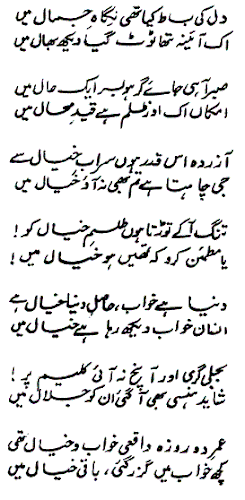 دل کی بساط کیا تھی نگاہ جمال میں
اک آئینہ تھا ٹوٹ گیا دیکھ بھال میں
صبر آہی جائے گر ہو بسر ایک حال میں
امکاں اک اور ظلم ہے قید محال میں
آزردہ اس قدر ہوں سراب خیال سے
جی چاہتا ہے تم بھی نہ آؤ خیال میں
تنگ آکے توڑتا ہوں طلسم خیال کو!
یا مطمئن کرو کہ تمھیں ہو خیال میں!
دنیا ہے خواب، حاصل دنیا خیال ہے
انسان خواب دیکھ رہا ہے خیال میں
بجلی گری اور آنچ نہ آئی کلیم پر!
شاید ہنسی بھی آگئی ان کو جلال میں
عمر دو روزہ واقعی خواب و خیال تھی
کچھ خواب میں گزر گئی، باقی خیال میں